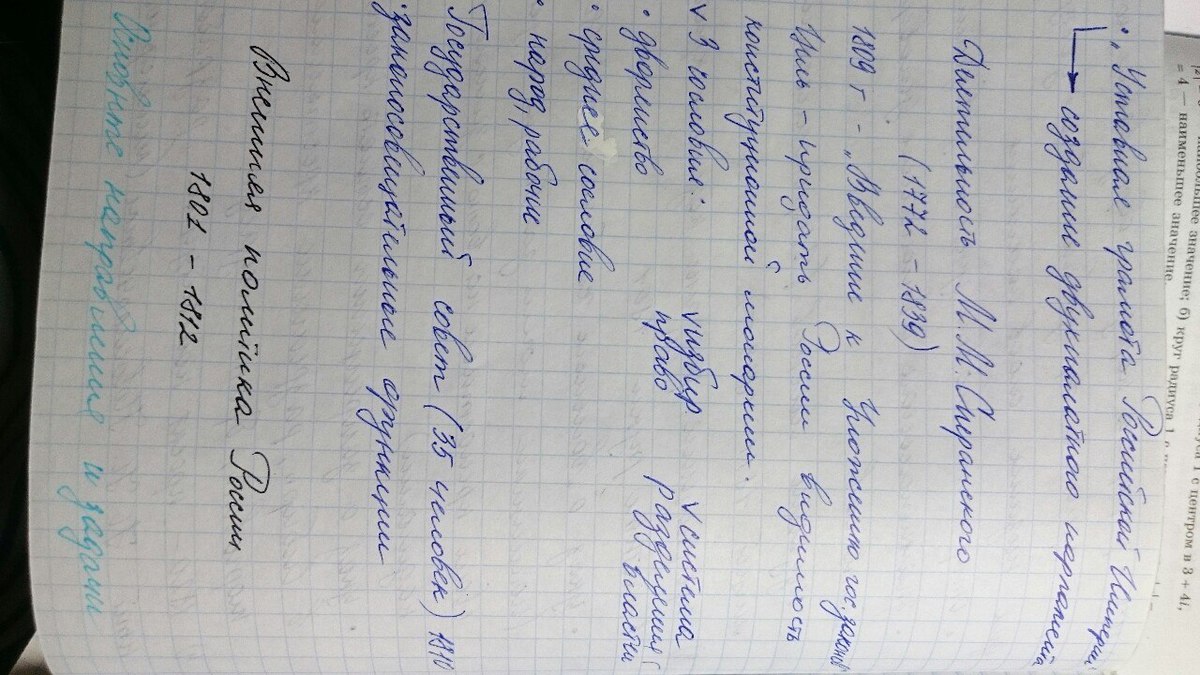 • „Уставная грамота Российской Империи
→ создание двухпалатного парламента
Деятельность М.М. Сперанского
(1772 – 1839)
1809 г – „Введение к Уложению гос. законов
Цель – придать России видимость
конституционной монархии.
v 3 сословия: v избир право v система разделения власти
• дворянство
• среднее сословие
• народ, рабочие
Государственный совет (35 человек) 1810
• законосовещательное функции
Внешняя политика России
1801 – 1812
Основные направления и задачи
наибольшее значение; б) круг радиуса 1 с
= 4 — наименьшее значение
1 с центром в 3 + 4i,